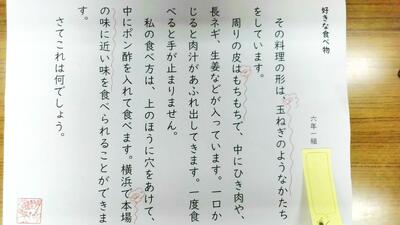 好きな食べ物
六年一組
その料理の形は、玉ねぎのようなかたち
をしています。
周りの皮はもちもちで、中にひき肉や、
長ネギ、生姜などが入っています。一口か
じると肉汁があふれ出してきます。一度食
べると手が止まりません。
私の食べ方は、上のほうに穴をあけて、
中にポン酢を入れて食べます。横浜で本場
の味に近い味を食べられることができま
す。
さてこれは何でしょう。